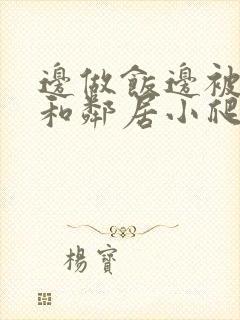 邊做飯邊被
和鄰居小爬
楊寶